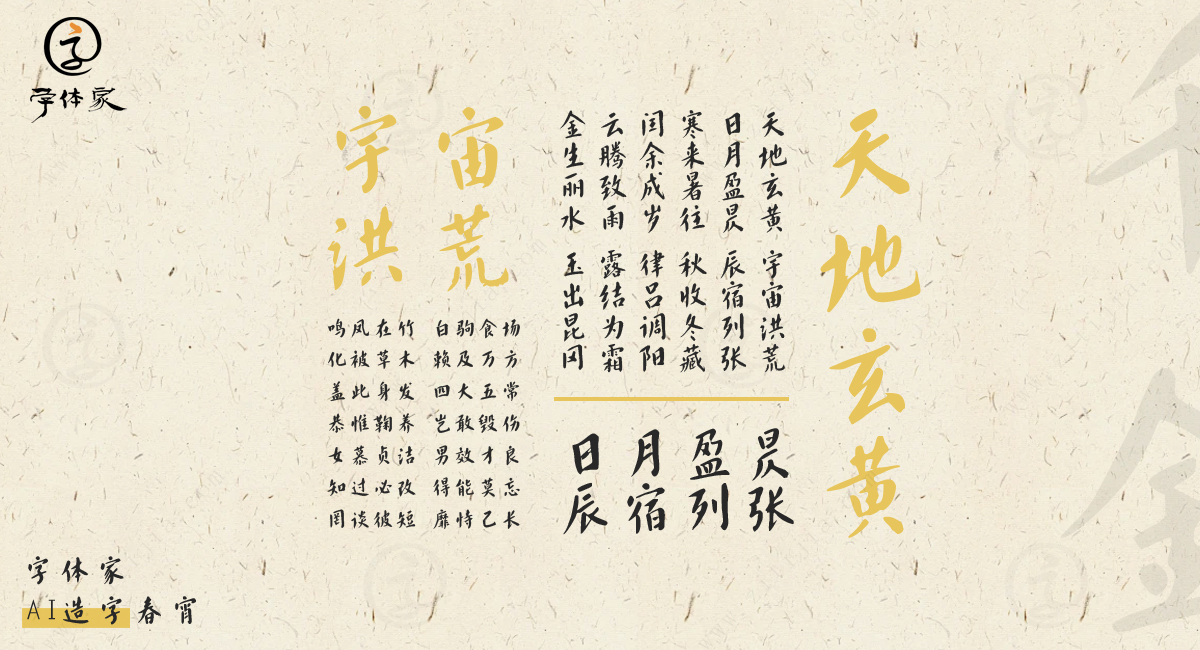 字体家
天地玄黄
天地玄黄 宇宙洪荒
日月盈昃 辰宿列张
寒来暑往 秋收冬藏
闰余成岁 律吕调阳
云腾致雨 露结为霜
金生丽水 玉出昆冈
日月盈昃
辰宿列张
宇宙
洪荒
鸣凤在竹 白驹食场
化被草木 赖及万方
盖此身发 四大五常
恭惟鞠养 岂敢毁伤
女慕贞洁 男效才良
知过必改 得能莫忘
罔谈彼短 靡恃己长
字体家
AI造字春宵